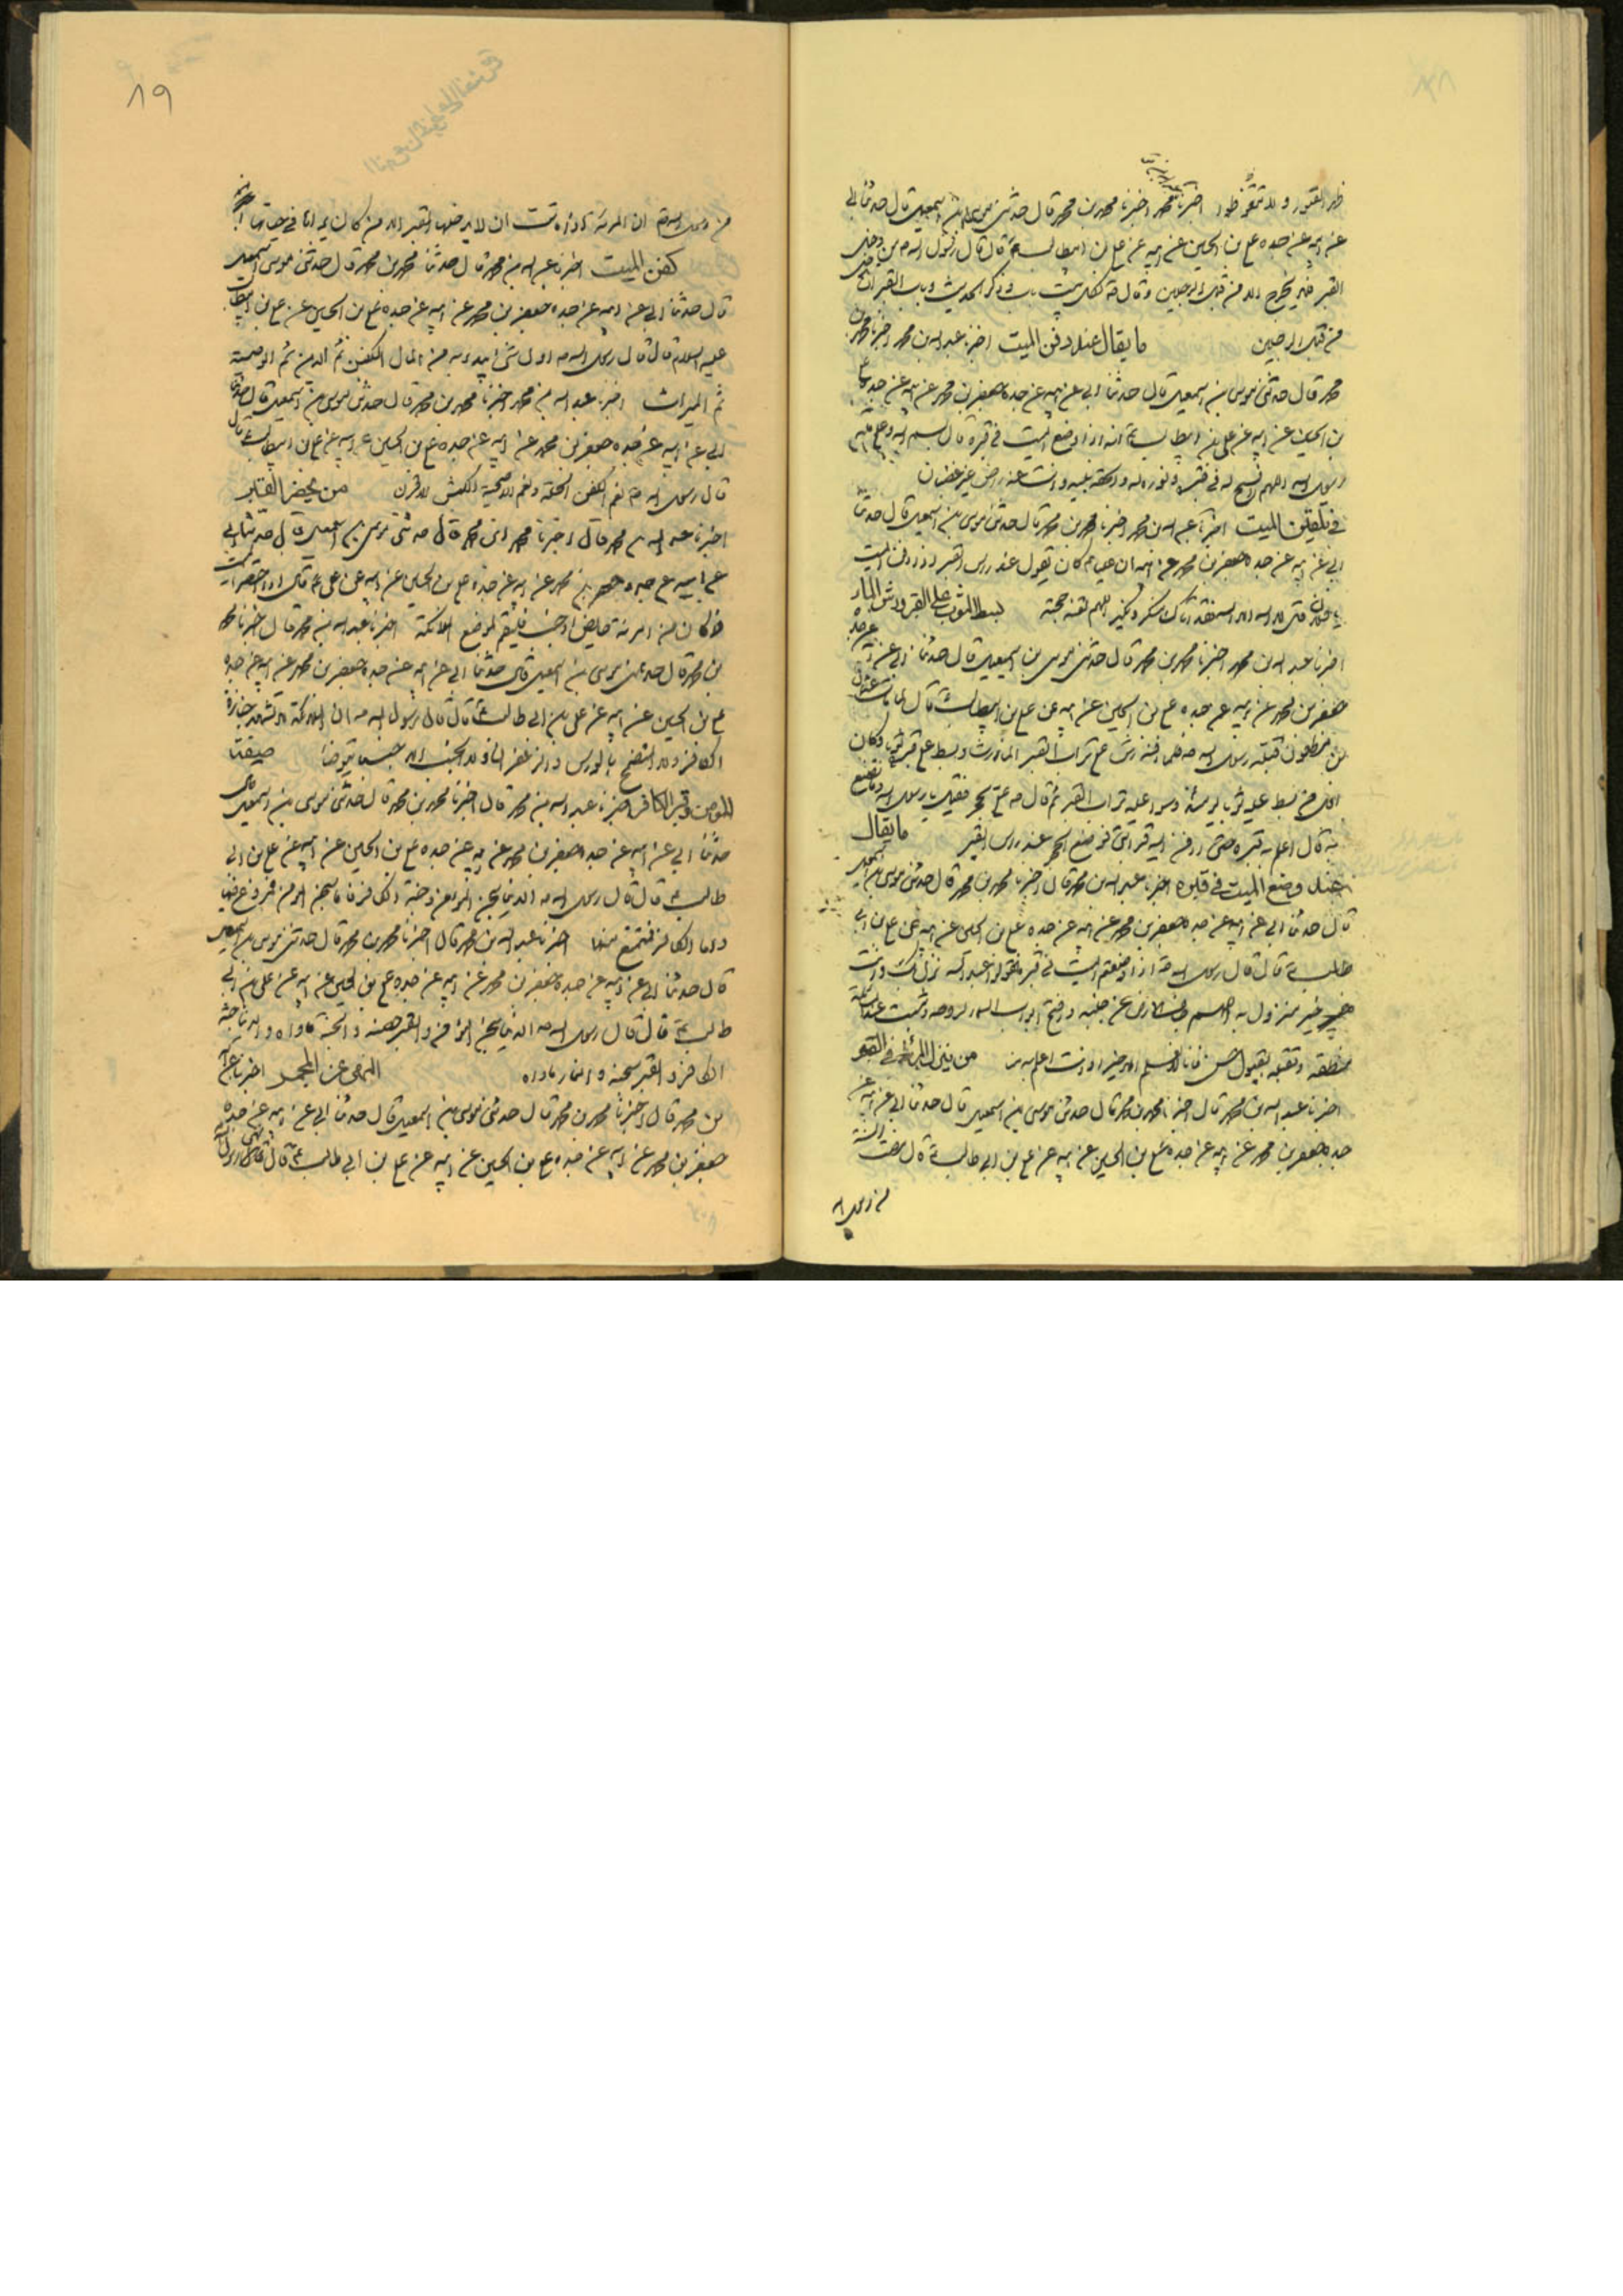 ظهر القبور ولا تتغوطوا اخبرنا محمد اخبرنا محمد بن محمد قال حدثني موسى بن اسمعيل قال حدثنا ابي
عن ابيه عن جده علي بن الحسين عن ابيه عن علي بن ابيطالب ع قال قال رسول الله ص من دخل
القبر فلا يخرج الا من قبل الرجلين وقال لكل بيت باب وذكر الحديث وباب القبر
من قبل الرجلين ما يقال عند دفن الميت اخبرنا عبد الله بن محمد اخبرنا محمد بن
محمد قال حدثني موسى بن اسمعيل قال حدثنا ابي عن ابيه عن جده جعفر بن محمد عن ابيه عن جده علي
بن الحسين عن ابيه عن علي بن ابيطالب ع انه اذا وضع الميت في قبره قال بسم الله وعلى ملة
رسول الله اللهم افسح له في قبره ونور له والحقه بنبيه وانت عنه راض غير غضبان
في تلقين الميت اخبرنا عبد الله بن محمد اخبرنا محمد بن محمد قال حدثني موسى بن اسمعيل قال حدثنا
ابي عن ابيه عن جده جعفر بن محمد عن ابيه ان عليا ع كان يقول عند رأس القبر اذا دفن الميت
يا فلان قل لا اله الا الله فقد اتاك منكر ونكير اللهم لقنه حجته بسط الثوب على القبر ورش الماء
اخبرنا عبد الله بن محمد اخبرنا محمد بن محمد قال حدثني موسى بن اسمعيل قال حدثنا ابي عن ابيه عن جده
جعفر بن محمد عن ابيه عن جده علي بن الحسين عن ابيه عن علي بن ابيطالب ع قال لما مات عثمان
بن مظعون قبله رسول الله ص فلما دفنه رش على تراب القبر الماء ورش وبسط على قبره ثوبا وكان
بسط عليه ثوبا يومئذ وسوا عليه تراب القبر ثم قال ص علي بحجر فقيل يا رسول الله وما تصنع
به قال اعلم به قبره حتى ادفن اليه قرابتي فوضع الحجر عند رأس القبر ما يقال
عند وضع الميت في قبره اخبرنا عبد الله بن محمد قال اخبرنا محمد بن محمد قال حدثني موسى بن اسمعيل
قال حدثنا ابي عن ابيه عن جده جعفر بن محمد عن ابيه عن جده علي بن الحسين عن ابيه عن علي بن ابي
طالب ع قال قال رسول الله ص اذا وضعتم الميت في قبره فقولوا عبد الله نزل بك وانت
خير منزول به اللهم جاف الارض عن جنبيه وافتح ابواب السماء لروحه وثبت عند المسئلة
منطقه وتقبله بقبول حسن فانا لا نعلم الا خيرا وانت اعلم به منا من ينزل المرأة في القبر
اخبرنا عبد الله بن محمد قال اخبرنا محمد بن محمد قال حدثني موسى بن اسمعيل قال حدثنا ابي عن ابيه عن
جده جعفر بن محمد عن ابيه عن جده علي بن الحسين عن ابيه عن علي بن ابي طالب ع قال مضت السنة
من رسول الله
١٩
من رسول الله ص ان المرئة اذا ماتت ان لا يدخلها القبر الا من كان يراها في حياتها
كفن الميت اخبرنا عبد الله بن محمد قال حدثنا محمد بن محمد قال حدثني موسى بن اسمعيل
قال حدثنا ابي عن ابيه عن جده جعفر بن محمد عن ابيه عن جده علي بن الحسين عن علي بن ابيطالب
عليه السلام قال قال رسول الله ص اول شئ يبدء به من المال الكفن ثم الدين ثم الوصية
ثم الميراث اخبرنا عبد الله بن محمد اخبرنا محمد بن محمد قال حدثني موسى بن اسمعيل قال حدثنا
ابي عن ابيه عن جده جعفر بن محمد عن ابيه عن جده علي بن الحسين عن ابيه عن علي بن ابيطالب ع قال
قال رسول الله ص نعم الكفن الحلة ونعم الاضحية الكبش الاقرن من يحضر القتلى
اخبرنا عبد الله بن محمد قال اخبرنا محمد بن محمد قال حدثني موسى بن اسمعيل قال حدثنا ابي
عن ابيه عن جده جعفر بن محمد عن ابيه عن جده علي بن الحسين عن ابيه عن علي ع قال اذا احتضر الميت
فما كان من امرئة حايض او جنب فليقم لموضع الملائكة اخبرنا عبد الله بن محمد قال اخبرنا محمد
بن محمد قال حدثني موسى بن اسمعيل قال حدثنا ابي عن ابيه عن جده جعفر بن محمد عن ابيه عن جده
علي بن الحسين عن ابيه عن علي بن ابي طالب ع قال قال رسول الله ص ان الملائكة لا تشهد جنازة
الكافر ولا المتضمخ بالورس والزعفران ولا الجنب الا جنبا يتوضأ
المؤمن وقبر الكافر اخبرنا عبد الله بن محمد قال اخبرنا محمد بن محمد قال حدثني موسى بن اسمعيل قال
حدثنا ابي عن ابيه عن جده جعفر بن محمد عن ابيه عن جده علي بن الحسين عن ابيه عن علي بن ابي
طالب ع قال قال رسول الله ص الدنيا سجن المؤمن وجنة الكافر فاما سجن المؤمن فيروغ فيها
واما الكافر فيتمتع منها اخبرنا عبد الله بن محمد قال اخبرنا محمد بن محمد قال حدثني موسى بن اسمعيل
قال حدثنا ابي عن ابيه عن جده جعفر بن محمد عن ابيه عن جده علي بن الحسين عن ابيه عن علي بن ابي
طالب ع قال قال رسول الله ص الدنيا سجن المؤمن والقبر حصنه والجنة مأواه والدنيا جنة
الكافر والقبر سجنه والنار مأواه النهى عن المجمر اخبرنا عبد الله
بن محمد قال اخبرنا محمد بن محمد قال حدثني موسى بن اسمعيل قال حدثنا ابي عن ابيه عن جده
جعفر بن محمد عن ابيه عن جده علي بن الحسين عن ابيه عن علي بن ابي طالب ع قال نهى رسول الله